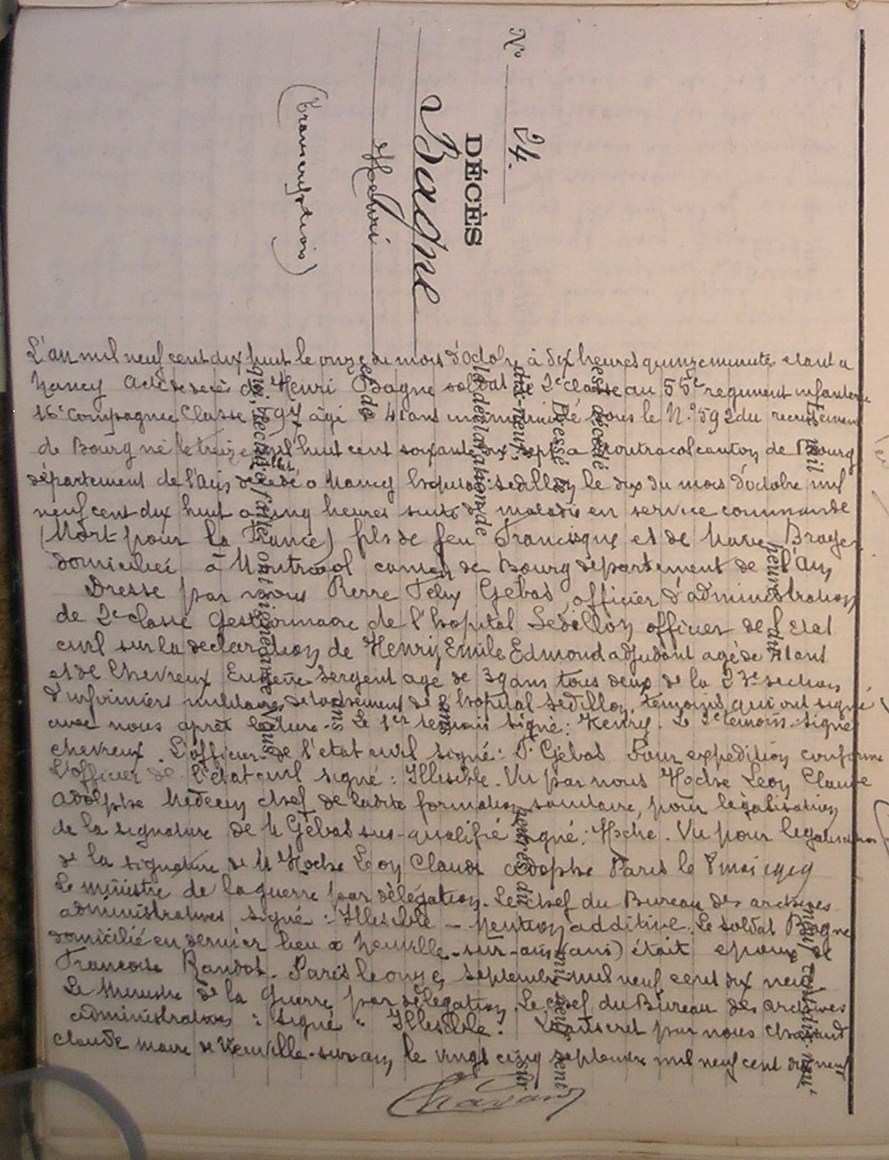 N° 24.
DÉCÈS
Bagne
Henri
(Transcription)
L'an mil neuf cent dix huit le onze du mois d'octobre à dix heures quinze minutes étant a
Nancy Acte de décès de Henri Bagne soldat de 2e classe au 55e regiment infanterie
16e Compagnie Classe 1897 agé 41 ans immatriculé sous le N° 592 du recrutement
de Bourg né le treize mil huit cent soixante dix sept a Montracol canton de Bourg
département de l'Ain décédé a Nancy hopital Sedillot le dix du mois d'octobre mil
neuf cent dix huit a cinq heures suite de maladie en service commandé
(Mort pour la France) fils de feu Francisque et de Marie
domiciliée à Montracol canton de Bourg département de l'Ain
Dressé par nous Pierre Felix Gebas officier d'administration
de 2e classe Gestionnaire de l'hopital Sedillot officier de l'Etat
civil sur la déclaration de Henry Emile Edmond adjudant agé de 41 ans
et de Chevreux Eugène sergent agé de 39 ans tous deux de la 23e section
d'infirmiers militaires détachement de l'hopital Sedillot, témoins qui ont signé
avec nous après lecture. Le 1er témoin signé: Henry. Le 2e témoin signé
Chevreux. L'officier de l'état civil signé: P. Gébas Pour expédition conforme
L'officier de l'état civil signé: Illisible. Vu par nous Hoche Leon Claude
Adolphe Médecin chef de ladite formation sanitaire, pour légalisation
de la signature de M Gébas sus-qualifié signé: Hoche. Vu pour légalisation
de la signature de M Hoche Leon Claude Adolphe Paris le 8 mai 1919
Le ministre de la guerre par délégation. Le chef du Bureau des archives
administratives signé: Illisible - Mention additive. Le soldat Bagne
domicilié en dernier lieu à Neuville-sur-ain (ain) était époux de
Françoise Randot. Paris le onze septembre mil neuf cent dix neuf
Le Ministre de la Guerre par délégation. Le chef du Bureau des archives
administratives: signé: Illisible. Transcrit par nous Chavand
Claude maire de Neuville-sur-ain, le vingt cinq septembre mil neuf cent dix neuf
Chavand